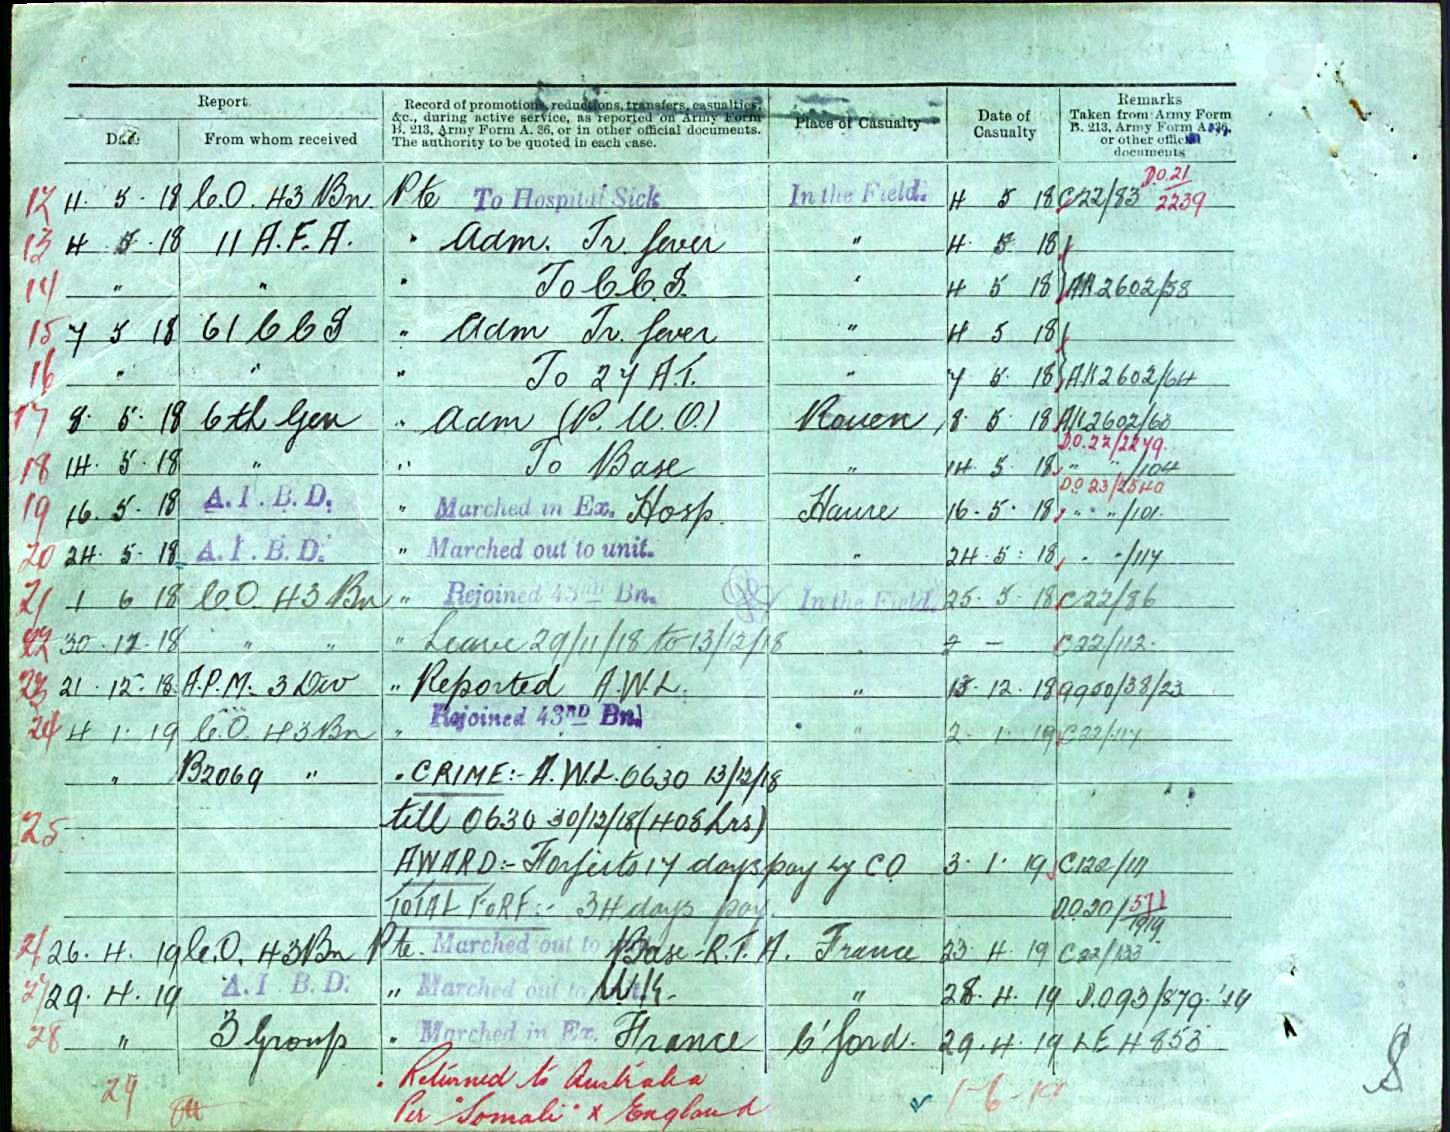 Report.
Date
From whom received
Record of promotions, reductions, transfers, casualties, &c., during active service, as reported on Army Form B. 213, Army Form A. 36, or in other official documents. The authority to be quoted in each case.
Place of Casualty
Date of Casualty
Remarks Taken from Army Form B. 213, Army Form A. 36, or other official documents
D.O. 21
12 4. 5. 18 C.O. 43 Bn. Pte To Hospital Sick In the Field. 4 5 18 C22/83 2239
13 4 5. 18 11 A.F.A. " Adm. Tr. fever " 4. 5 18
14 " " " To C.C.S. " 4 5 18 AR2602/58
15 7 5 18 61 C C S " Adm Tr. fever " 4 5 18
16 " " " To 27 A.T. " 7 5. 18 AR2602/64
17 8. 5. 18 6th Gen " Adm (P.U.O.) Rouen, 8. 5. 18 AR2602/60
D.O. 22/2279.
18 14. 5. 18 " " To Base " 14. 5. 18 " " /104
DO 23/2540
19 16. 5. 18 A. I. B. D. " Marched in Ex. Hosp. Havre 16. 5. 18 " " /101.
20 24. 5. 18 A. I. B. D. " Marched out to unit. " 24. 5. 18 " /117
21 1 6 18 C.O. 43 Bn " Rejoined 43RD Bn. In the Field. 25. 5. 18 C22/86
22 30. 12. 18 " " " Leave 29/11/18 to 13/12/18 - C22/112.
23 21. 12. 18. A.P.M. 3 Div " Reported A.W.L. " 13. 12. 18 9950/38/23
24 4 1. 19 C.O. 43 Bn " Rejoined 43RD Bn. " 2. 1. 19 C22/117
" B2069 " " CRIME:- A.W.L. 0630 13/12/18
25 till 0630 30/12/18 (408 hrs)
AWARD:- Forfeits 17 days pay by CO 3. 1. 19 C122/117
TOTAL FORF:- 34 days pay. D.O.20/571
1919.
26. 4. 19 C.O. 43 Bn Pte. Marched out to Base - R.T.A. France 23. 4. 19 C22/133
27 29. 4. 19 A. I. B. D. " Marched out to U.K. " 28. 4. 19 D.O93/879.'19
28 " 3 Group " Marched in Ex. France C'ford. 29. 4. 19 LE 4853
29 Returned to Australia
Per "Somali" x England 1-6-19